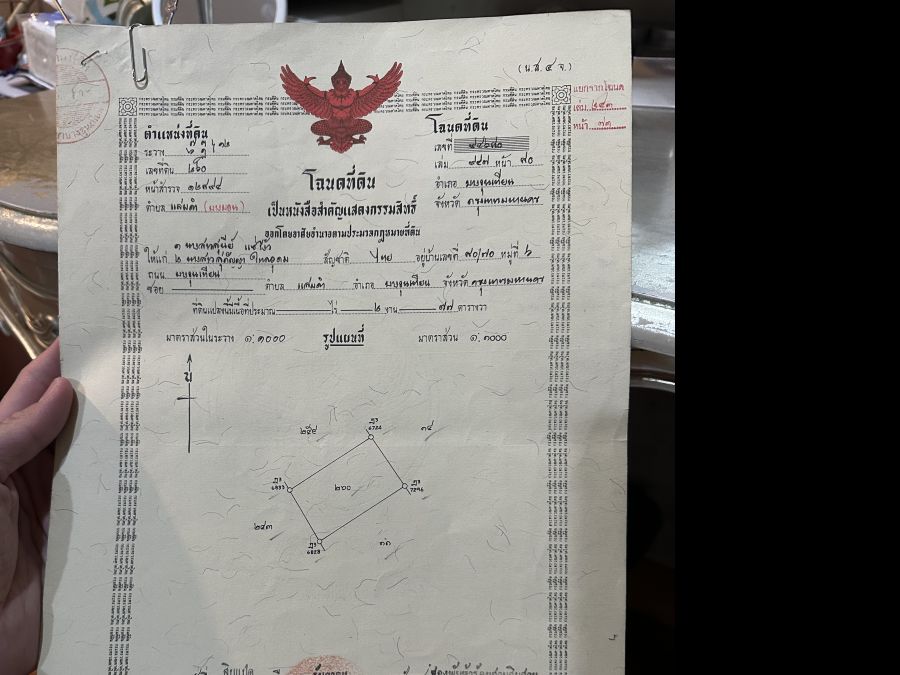 (น.ส. ๔ จ.)
แยกจากโฉนด
เล่ม ๒๔๓
หน้า ๗๓
ตำแหน่งที่ดิน
ระวาง
เลขที่ดิน ๒๖๐
หน้าสำรวจ ๑๒๙๔๔
ตำบล แสมดำ (บางบอน)
โฉนดที่ดิน
เลขที่
เล่ม ๔๔๗ หน้า ๙๐
อำเภอ บางขุนเทียน
จังหวัด กรุงเทพมหานคร
โฉนดที่ดิน
เป็นหนังสือสำคัญแสดงกรรมสิทธิ์
ออกโดยอาศัยอำนาจตามประมวลกฎหมายที่ดิน
๑ นางสาว
ให้แก่ ๒ นางสาว สัญชาติ ไทย อยู่บ้านเลขที่ ๙๐/๗๐ หมู่ที่ ๖
ถนน บางขุนเทียน
ซอย ตำบล แสมดำ อำเภอ บางขุนเทียน จังหวัด กรุงเทพมหานคร
ที่ดินแปลงนี้มีเนื้อที่ประมาณ ไร่ ๒ งาน ๗๗ ตารางวา
มาตราส่วนในระวาง ๑:๑๐๐๐ รูปแผนที่ มาตราส่วน ๑:๑๐๐๐
น
๒๕๙
๑๔
๒๖๐
๒๔๓
๑๑